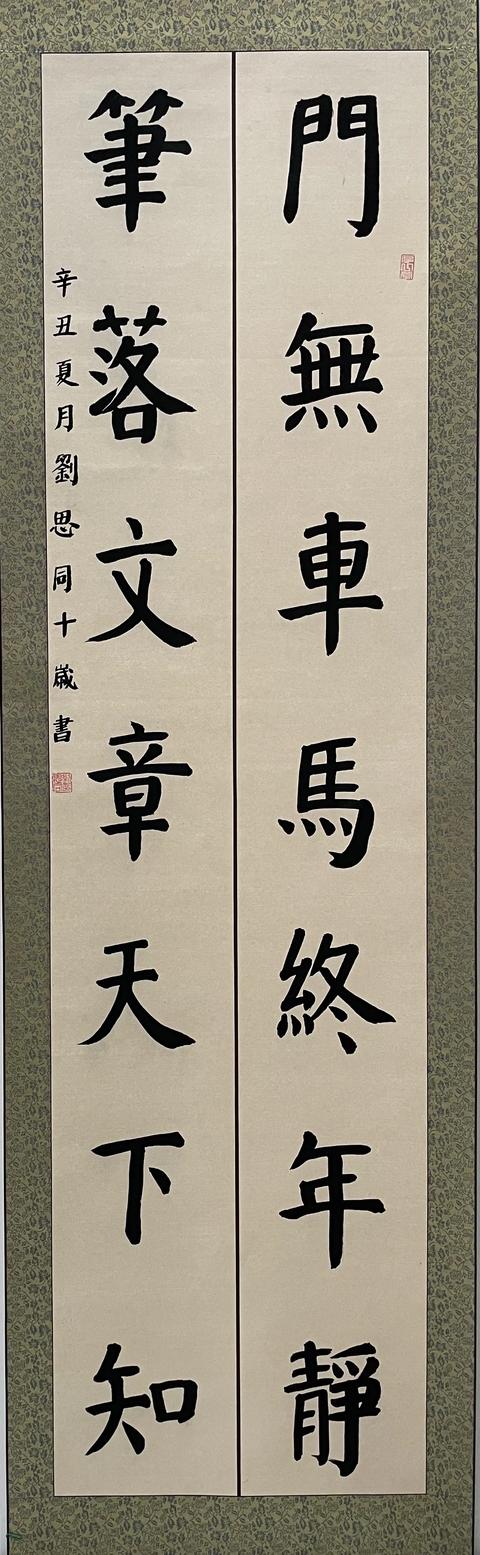 門無車馬終年靜
筆落文章天下知
辛丑夏月劉思同十歲書